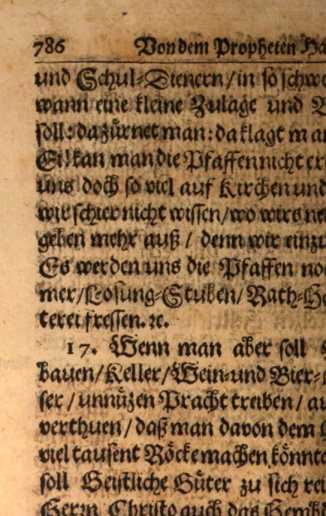 786 Von dem Propheten Ha
und Schul-Dienern/in so schwe
wann eine kleine Zulage und
soll: da zürnet man: da klagt man
Ei! kan man die Pfaffen nicht er
uns doch so viel auf Kirchen und
wir schier nicht wissen/wo wirs ne
geben mehr auß / denn wir einzu
Es werden uns die Pfaffen no
mer/Losung-Stuben/Rath-H
terei fressen. ꝛc.
17. Wenn man aber soll
bauen/Keller/Wein-und Bier-
ser / unnüzen Pracht treiben / au
verthuen/daß man davon dem
viel tausent Röcke machen könnte
soll Geistliche Güter zu sich rei
Herrn Christo auch das Hembd